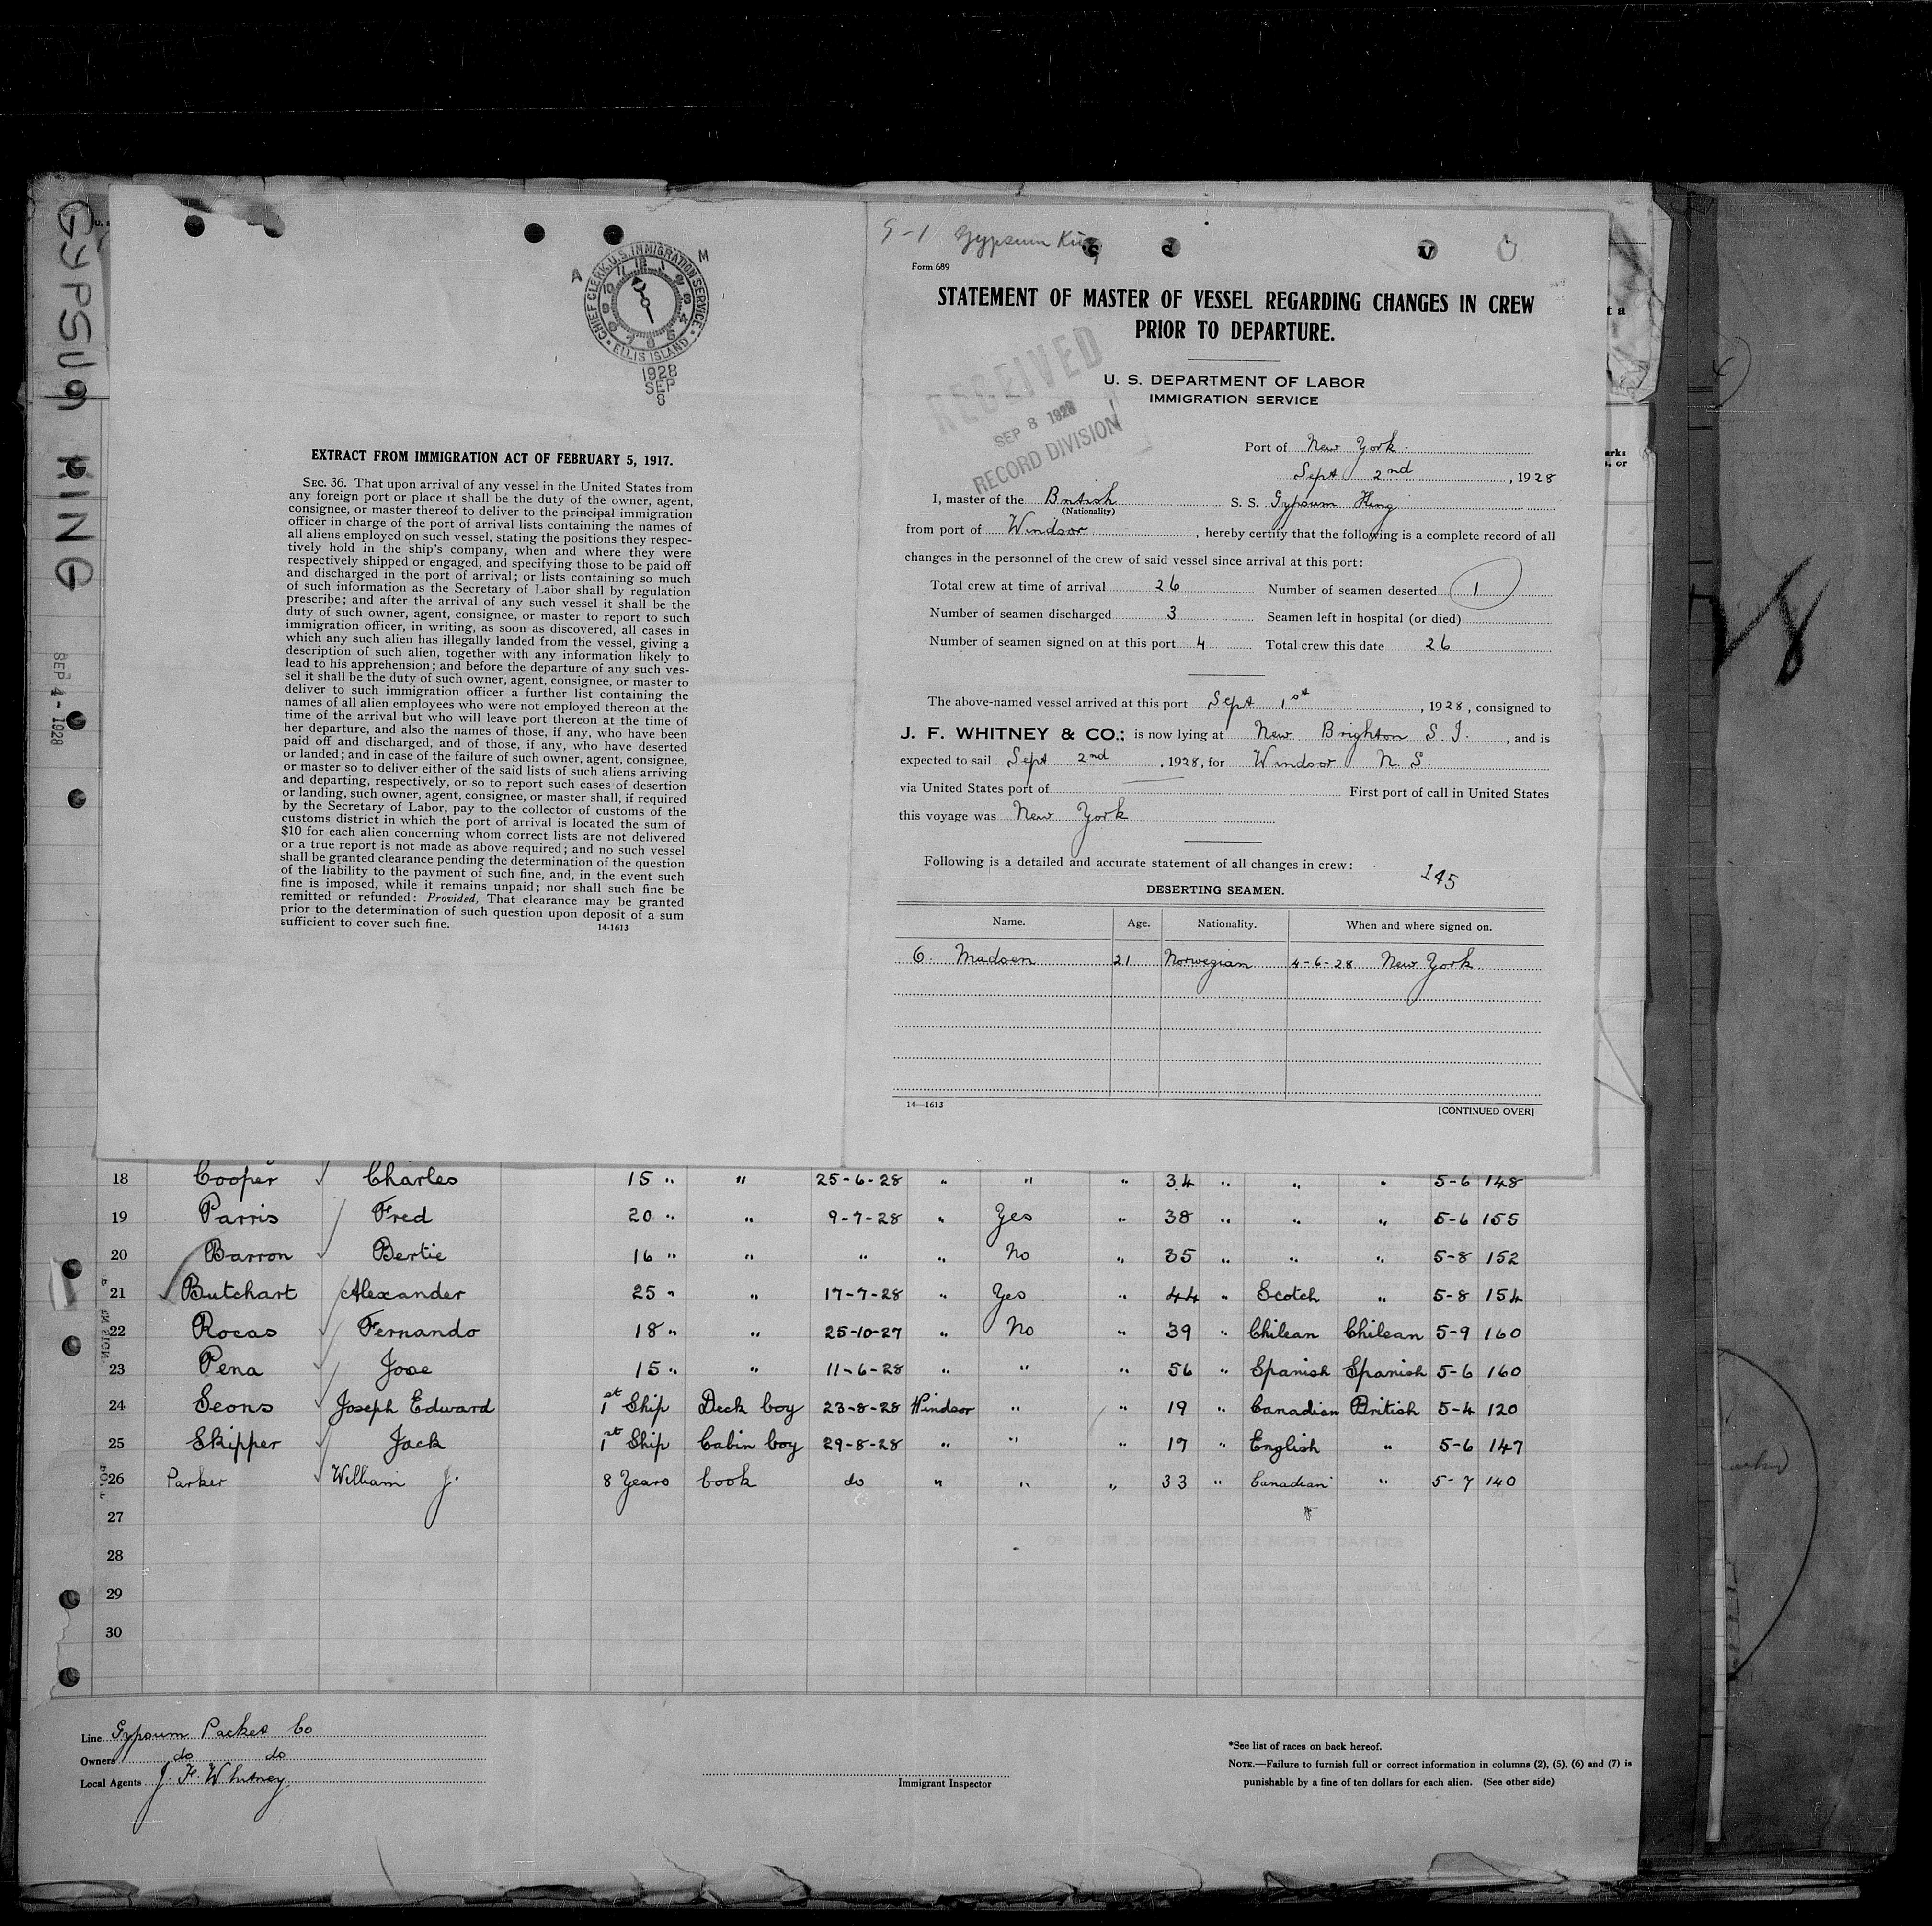 GYPSUM KING
SEP 4 - 1928
A M
CHIEF CLERK, U.S. IMMIGRATION SERVICE
ELLIS ISLAND
1928
SEP
8
EXTRACT FROM IMMIGRATION ACT OF FEBRUARY 5, 1917.
SEC. 36. That upon arrival of any vessel in the United States from
any foreign port or place it shall be the duty of the owner, agent,
consignee, or master thereof to deliver to the principal immigration
officer in charge of the port of arrival lists containing the names of
all aliens employed on such vessel, stating the positions they respec-
tively hold in the ship's company, when and where they were
respectively shipped or engaged, and specifying those to be paid off
and discharged in the port of arrival; or lists containing so much
of such information as the Secretary of Labor shall by regulation
prescribe; and after the arrival of any such vessel it shall be the
duty of such owner, agent, consignee, or master to report to such
immigration officer, in writing, as soon as discovered, all cases in
which any such alien has illegally landed from the vessel, giving a
description of such alien, together with any information likely to
lead to his apprehension; and before the departure of any such ves-
sel it shall be the duty of such owner, agent, consignee, or master to
deliver to such immigration officer a further list containing the
names of all alien employees who were not employed thereon at the
time of the arrival but who will leave port thereon at the time of
her departure, and also the names of those, if any, who have been
paid off and discharged, and of those, if any, who have deserted
or landed; and in case of the failure of such owner, agent, consignee,
or master so to deliver either of the said lists of such aliens arriving
and departing, respectively, or so to report such cases of desertion
or landing, such owner, agent, consignee, or master shall, if required
by the Secretary of Labor, pay to the collector of customs of the
customs district in which the port of arrival is located the sum of
$10 for each alien concerning whom correct lists are not delivered
or a true report is not made as above required; and no such vessel
shall be granted clearance pending the determination of the question
of the liability to the payment of such fine, and, in the event such
fine is imposed, while it remains unpaid; nor shall such fine be
remitted or refunded: Provided, That clearance may be granted
prior to the determination of such question upon deposit of a sum
sufficient to cover such fine. 14-1613
9-1 Gypsum King
Form 689
STATEMENT OF MASTER OF VESSEL REGARDING CHANGES IN CREW
PRIOR TO DEPARTURE.
RECEIVED
SEP 8 1928
RECORD DIVISION
U. S. DEPARTMENT OF LABOR
IMMIGRATION SERVICE
Port of New York.
Sept 2nd, 1928
I, master of the British S. S. Gypsum King
(Nationality)
from port of Windsor, hereby certify that the following is a complete record of all
changes in the personnel of the crew of said vessel since arrival at this port:
Total crew at time of arrival 26 Number of seamen deserted 1
Number of seamen discharged 3 Seamen left in hospital (or died)
Number of seamen signed on at this port 4 Total crew this date 26
The above-named vessel arrived at this port Sept 1st, 1928, consigned to
J. F. WHITNEY & CO.; is now lying at New Brighton S. I., and is
expected to sail Sept 2nd, 1928, for Windsor N. S.
via United States port of First port of call in United States
this voyage was New York
Following is a detailed and accurate statement of all changes in crew:
145
DESERTING SEAMEN.
Name. Age. Nationality. When and where signed on.
6. Madsen 21 Norwegian 4-6-28 New York
14—1613 [CONTINUED OVER]
18 Cooper Charles 15 " " 25-6-28 " " " 34 " " " 5-6 148
19 Parris Fred 20 " " 9-7-28 " Yes " 38 " " " 5-6 155
20 Barron Bertie 16 " " " " No " 35 " " " 5-8 152
21 Butchart Alexander 25 " " 17-7-28 " Yes " 44 " Scotch " 5-8 154
22 Rocas Fernando 18 " " 25-10-27 " No " 39 " Chilean Chilean 5-9 160
23 Pena Jose 15 " " 11-6-28 " " " 56 " Spanish Spanish 5-6 160
24 Seons Joseph Edward 1st Ship Deck boy 23-8-28 Windsor " " 19 " Canadian British 5-4 120
25 Skipper Jack 1st Ship Cabin boy 29-8-28 " " " 17 " English " 5-6 147
26 Parker William J. 8 Years Cook do " " " 33 " Canadian " 5-7 140
27
28
29
30
Line Gypsum Packet Co
Owners do do
Local Agents J. F. Whitney
Immigrant Inspector
*See list of races on back hereof.
NOTE.—Failure to furnish full or correct information in columns (2), (5), (6) and (7) is
punishable by a fine of ten dollars for each alien. (See other side)